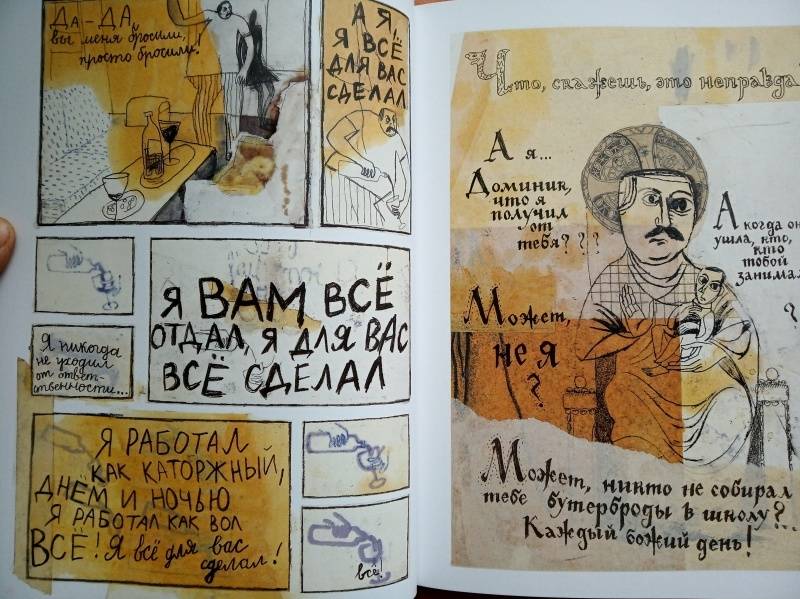 Да-да,
вы меня бросили,
просто бросили!
А я,
я всё
для вас
сделал
Я никогда
не уходил
от ответ-
ственности...
Я ВАМ ВСЁ
ОТДАЛ, Я ДЛЯ ВАС
ВСЁ СДЕЛАЛ
Я РАБОТАЛ
КАК КАТОРЖНЫЙ,
ДНЁМ И НОЧЬЮ
Я РАБОТАЛ КАК ВОЛ
ВСЁ! Я всё для вас
сделал!
всё!
Что, скажешь, это неправда
А я...
Доминик,
что я
получил
от
тебя???
А когда он
ушла, кто,
кто
тобой
занимал
?
Может,
не я
?
Может, никто не собирал
тебе бутерброды в школу?
Каждый божий день!